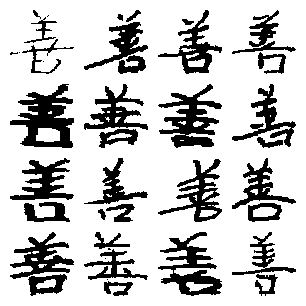 善善善善
善善善善
善善善善
善善善善